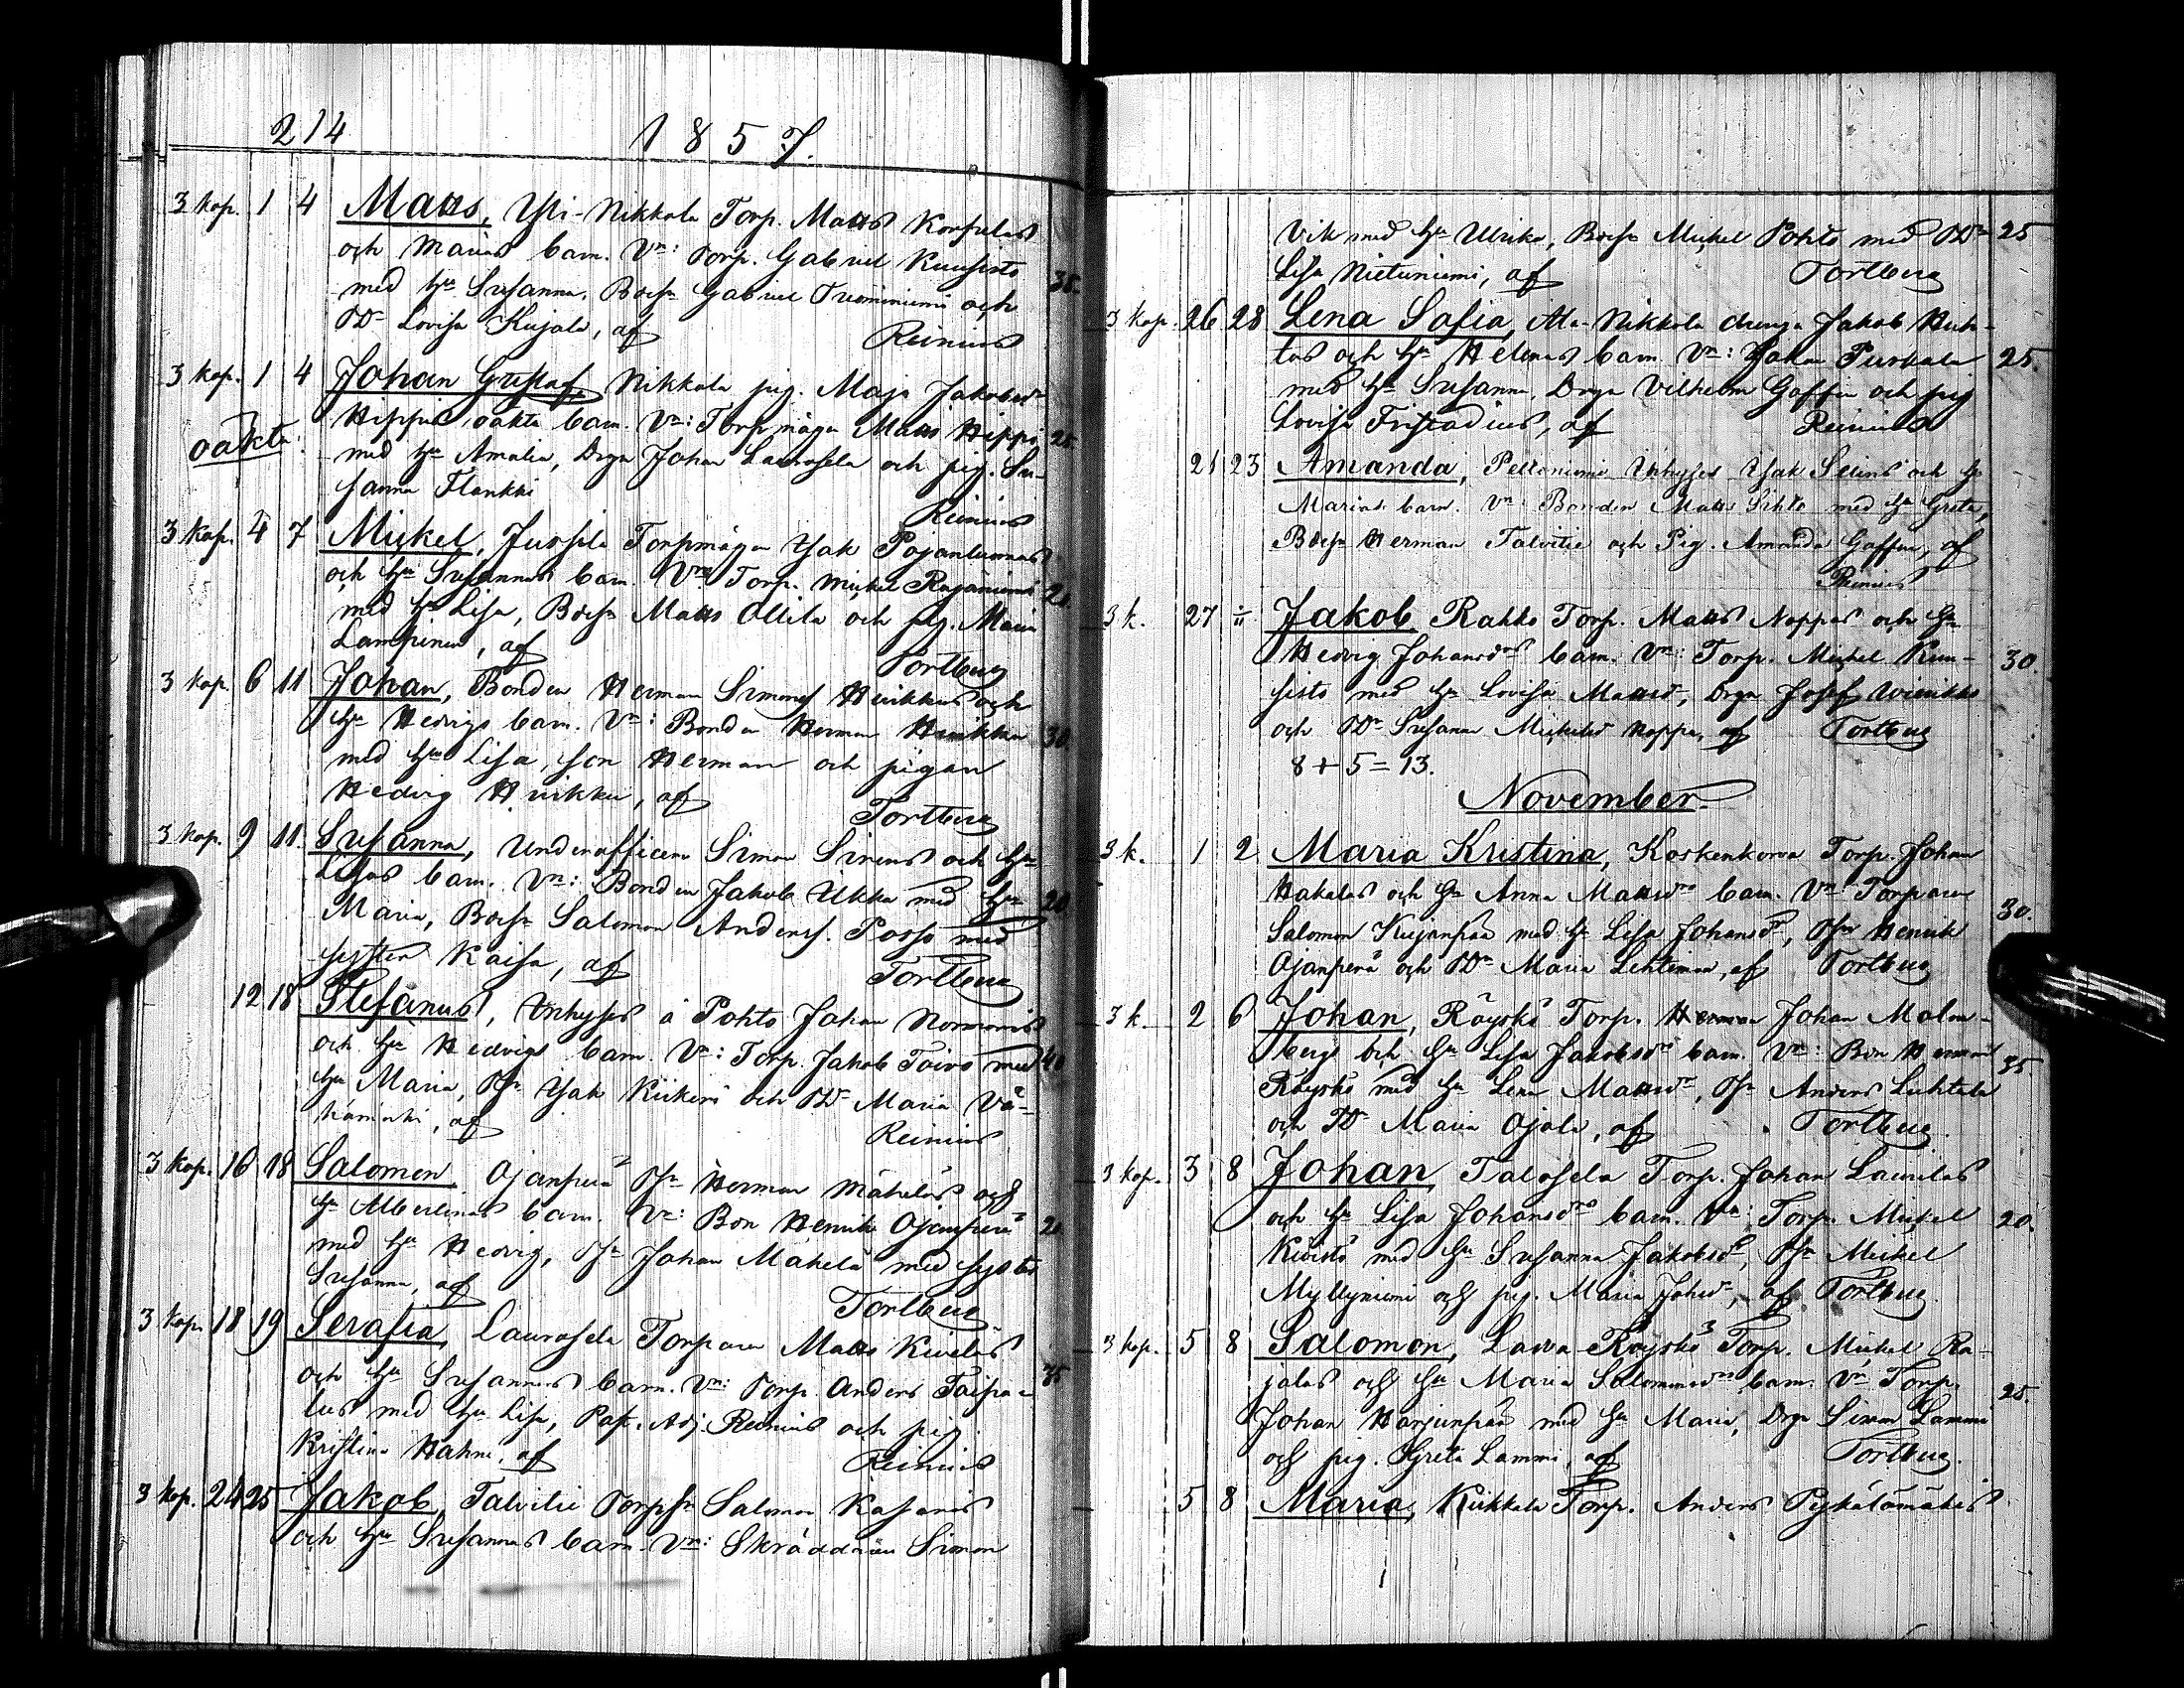 214
1857.
3 kop. 1 4 Matts, Yli-Nikkola Torp. Matts Korpelas
och Marias barn. Vn: Torp. Gabriel Kuusisto
med hu Susanna, Bdsn Gabriel Tuominiemi och 35.
BDr Lovisa Kujala, af Reinius
3 kop. 1 4 Johan Gustaf, Nikkola pig. Maja Jakobsdr
oäkta: Hippis oäkta barn. Vn: Torpmågen Matts Hippi 25
med hu Amalia, Drgn Johan Laurosela och pig. Su-
sanna Flankki
Reinius
3 kop. 4 7 Mickel, Jussila Torpmågen Isak Pojanluomas
och hu Susannas barn. Vne Torp. Mickel Rajaniemi
med hu Lisa, Bdsn Matts Ollila och pig. Maria
Lampinen, af Tortberg
3 kop. 6 11 Johan, Bonden Herman Simons Hinkkus och
hu Hedvigs barn. Vn: Bonden Herman Hinkku 30.
med hu Lisa, son Herman och pigan
Hedvig Hinkku, af Tortberg
3 kop. 9 11. Susanna, Underofficern Simon Sirens och hu
Lisas barn. Vn: Bonden Jakob Ukko med hu 20
Maria, Bdsn Salomon Anders. Posso med
syster Kaisa, af Tortberg
12 18 Stefanus, Inhyses å Pohto Johan
och hu Hedvigs barn. Vn: Torp. Jakob Toivo med 40
hu Maria, Isak Kiikeri och BDr Maria Vä-
hämäki, af Reinius
3 kop. 16 18 Salomon, Ojanperä Herman Mäkeläs och
hu Albertinas barn. Vn: Bon Henrik Ojanperä
med hu Hedvig, Johan Mäkelä med syster
Susanna, af Tortberg
3 kop. 18 19 Serafia, Laurosela Torparen Matts Kiveläs
och hu Susannas barn. Vn: Torp. Anders Taipa- 35
lus med hu Lisa, Past. Adj. Reinius och pig.
Kristina Hahni, af Reinius
3 kop. 24 25 Jakob, Talvitie Torpsn Salomon Kasaris
och hu Susannas barn. Vn: Skräddaren Simon
Vik med hu Ulrika, Bdsn Mickel Pohto med BDr 25
Lisa Nietuniemi, af Tortberg
3 kop. 26 28 Lena Sofia, Ala-Nikkola drengn Jakob Huh-
tas och hu Helenas barn. Vn: Johan Puskala 25.
med hu Susanna, Drgn Vilhelm Goffin och pig
Lovisa Fristadius, af Reinius
21 23 Amanda, Peltoniemi Inhyses Isak Selins och hu
Marias barn. Vn: Bonden Matts Sihto med hu Greta,
Bdsn Herman Talvitie och Pig. Amanda Goffin, af
Reinius
3 k. 27 Jakob, Rahko Torp. Matts Noppas och hu
Hedvig Johansdrs barn. Vn: Torp. Mickel Kuu- 30.
sisto med hu Lovisa Mattsdr, Drgn Josef
och BDr Susanna Mickelsdr Noppa, af Tortberg
8 + 5 = 13.
November.
3 k. 1 2 Maria Kristina, Koskenkorva Torp. Johan
Hakalas och hu Anna Mattsdrs barn. Vn Torparen 30.
Salomon Kujanpää med hu Lisa Johansdr, Henrik
Ojanperä och BDr Maria Lehtimäen, af Tortberg
3 k. 2 6 Johan, Röyskö Torp. Herman Johan Malm-
bergs och hu Lisa Jakobsdrs barn. Vn: Bon Herman 35.
Röyskö med hu Lena Mattsdr, Anders Luhtala
och BDr Maria Ojala, af Tortberg.
3 kop. 3 8 Johan, Talosela Torp. Johan Laurilas
och hu Lisa Johansdrs barn. Vn: Torp. Mickel 20.
Kivistö med hu Susanna Jakobsdr, Mickel
Myllyniemi och pig. Maria Johsdr, af Tortberg.
3 kop. 5 8 Salomon, Larva-Röyskö Torp. Mickel Ra-
jalas och hu Maria Salomonsdrs barn. Vn Torp. 25.
Johan Harjunpää med hu Maria, Drgn Simon Lammi
och pig. Greta Lammi, af Tortberg.
5 8 Maria, Kiikkala Torp. Anders Pyhälämäkis